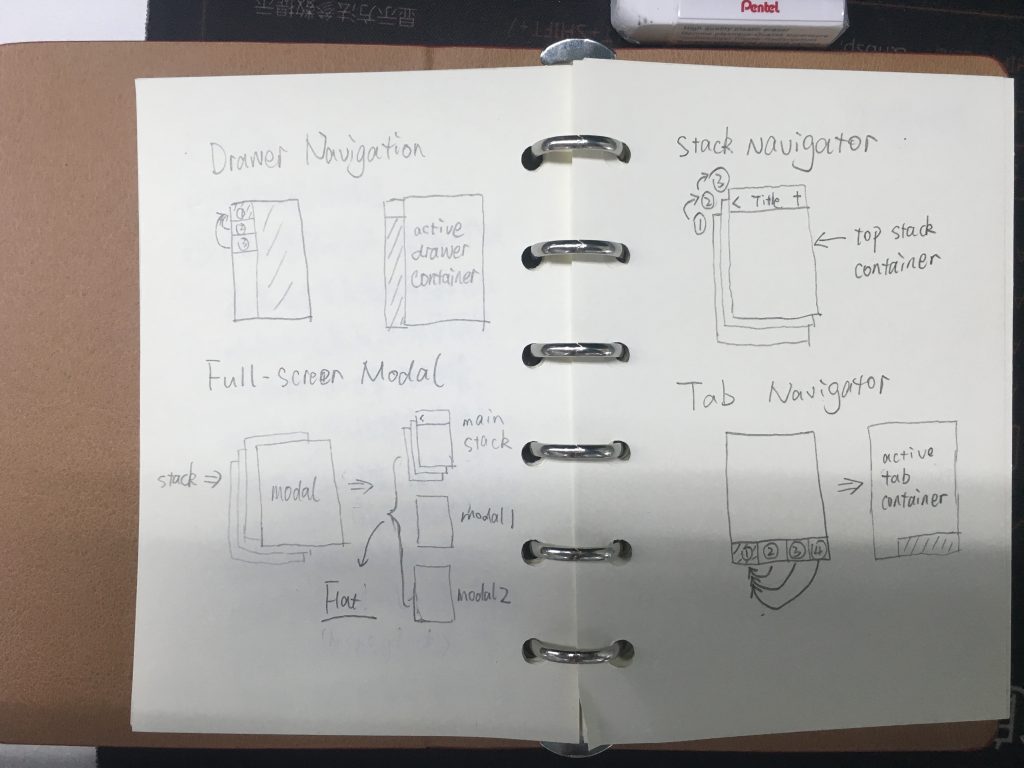 显示方法参数提示
Pentel
Drawer Navigation
①
②
③
active
drawer
container
Full-screen Modal
stack ⇒
modal
⇒
<
main
stack
modal1
modal2
Flat
Stack Navigator
③
②
①
< Title +
← top stack
container
Tab Navigator
① ② ③ ④
⇒
active
tab
container